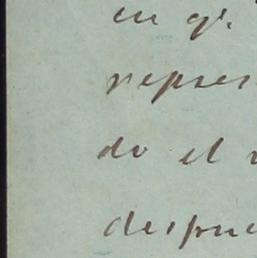 en qe.
repres
do el
despue